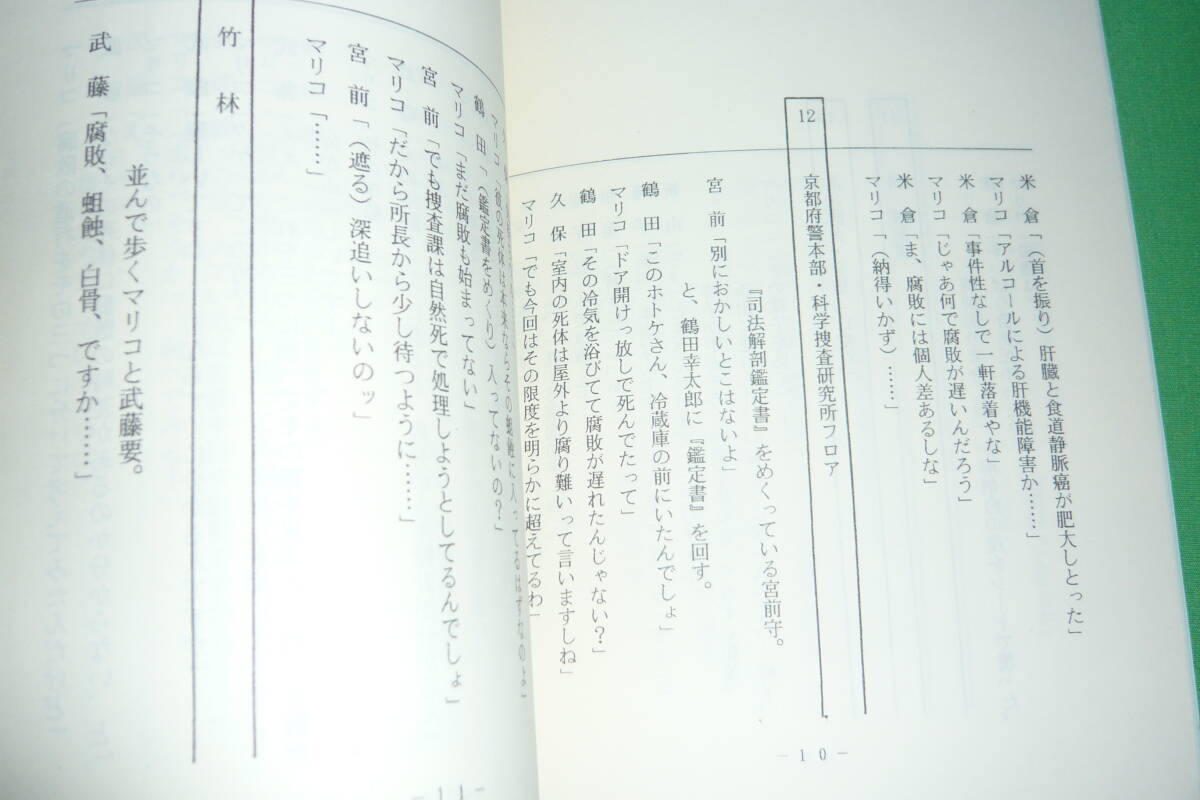 米　倉「（首を振り）肝臓と食道静脈瘤が肥大しとった」
マリコ「アルコールによる肝機能障害か……」
米　倉「事件性なしで一軒落着やな」
マリコ「じゃあ何で腐敗が遅いんだろう」
米　倉「ま、腐敗には個人差あるしな」
マリコ「（納得いかず）……」
12　京都府警本部・科学捜査研究所フロア
『司法解剖鑑定書』をめくっている宮前守。
宮　前「別におかしいとこはないよ」
と、鶴田幸太郎に『鑑定書』を回す。
鶴　田「このホトケさん、冷蔵庫の前にいたんでしょ」
マリコ「ドア開けっ放しで死んでたって」
鶴　田「その冷気を浴びてて腐敗が遅れたんじゃない？」
久　保「室内の死体は屋外より腐り難いって言いますしね」
マリコ「でも今回はその限度を明らかに超えてるわ」
－１０－
の死体は本来ならその
に入ってるはずなのよ」
鶴　田「（鑑定書をめくり）入ってないの？」
マリコ「まだ腐敗も始まってない」
宮　前「でも捜査課は自然死で処理しようとしてるんでしょ」
マリコ「だから所長から少し待つように……」
宮　前「（遮る）深追いしないのッ」
マリコ「……」
竹　林
並んで歩くマリコと武藤要。
武　藤「腐敗、蛆蝕、白骨、ですか……」